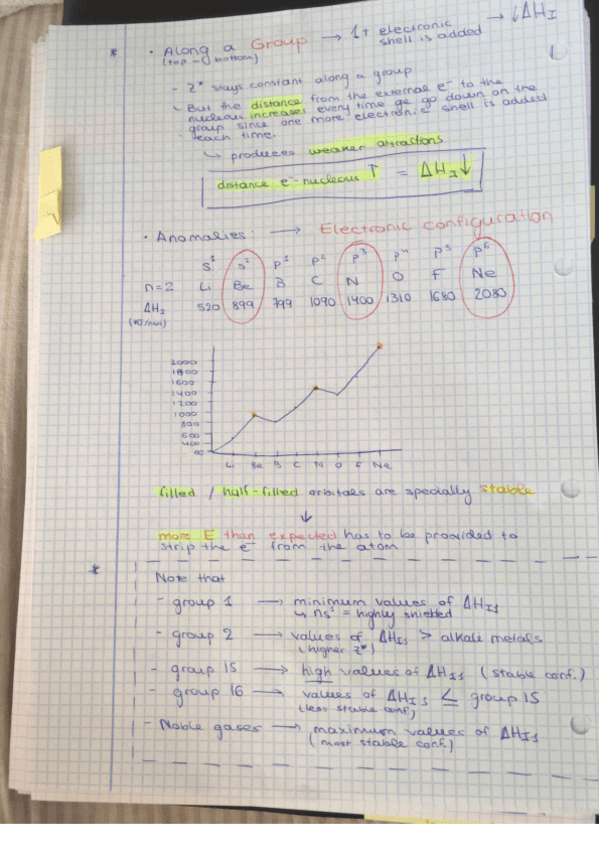 * • Along a Group → 1+ electronic → ↓ΔH_I
(top → bottom) shell is added
- Z* stays constant along a group
- But the distance from the external e⁻ to the
nucleous increases every time ge go down on the
group since one more electronic shell is added
each time.
↳ produces weaker attractions
distance e⁻-nucleous ↑ = ΔH_I ↓
• Anomalies: → Electronic configuration
s¹ s² p¹ p² p³ p⁴ p⁵ p⁶
n=2 Li Be B C N O F Ne
ΔH_I 520 899 799 1090 1400 1310 1680 2080
(KJ/mol)
2000
1800
1600
1400
1200
1000
800
600
400
Li Be B C N O F Ne
filled / half-filled orbitals are specially stable
↓
more E than expected has to be provided to
strip the e⁻ from the atom
*
Note that
- group 1 → minimum values of ΔH_I1
↳ ns¹ = highly shielded
- group 2 → values of ΔH_I1 > alkali metals
(higher Z*)
- group 15 → high values of ΔH_I1 (stable conf.)
- group 16 → values of ΔH_I1 ≤ group 15
(less stable conf.)
- Noble gases → maximum values of ΔH_I1
(most stable conf.)